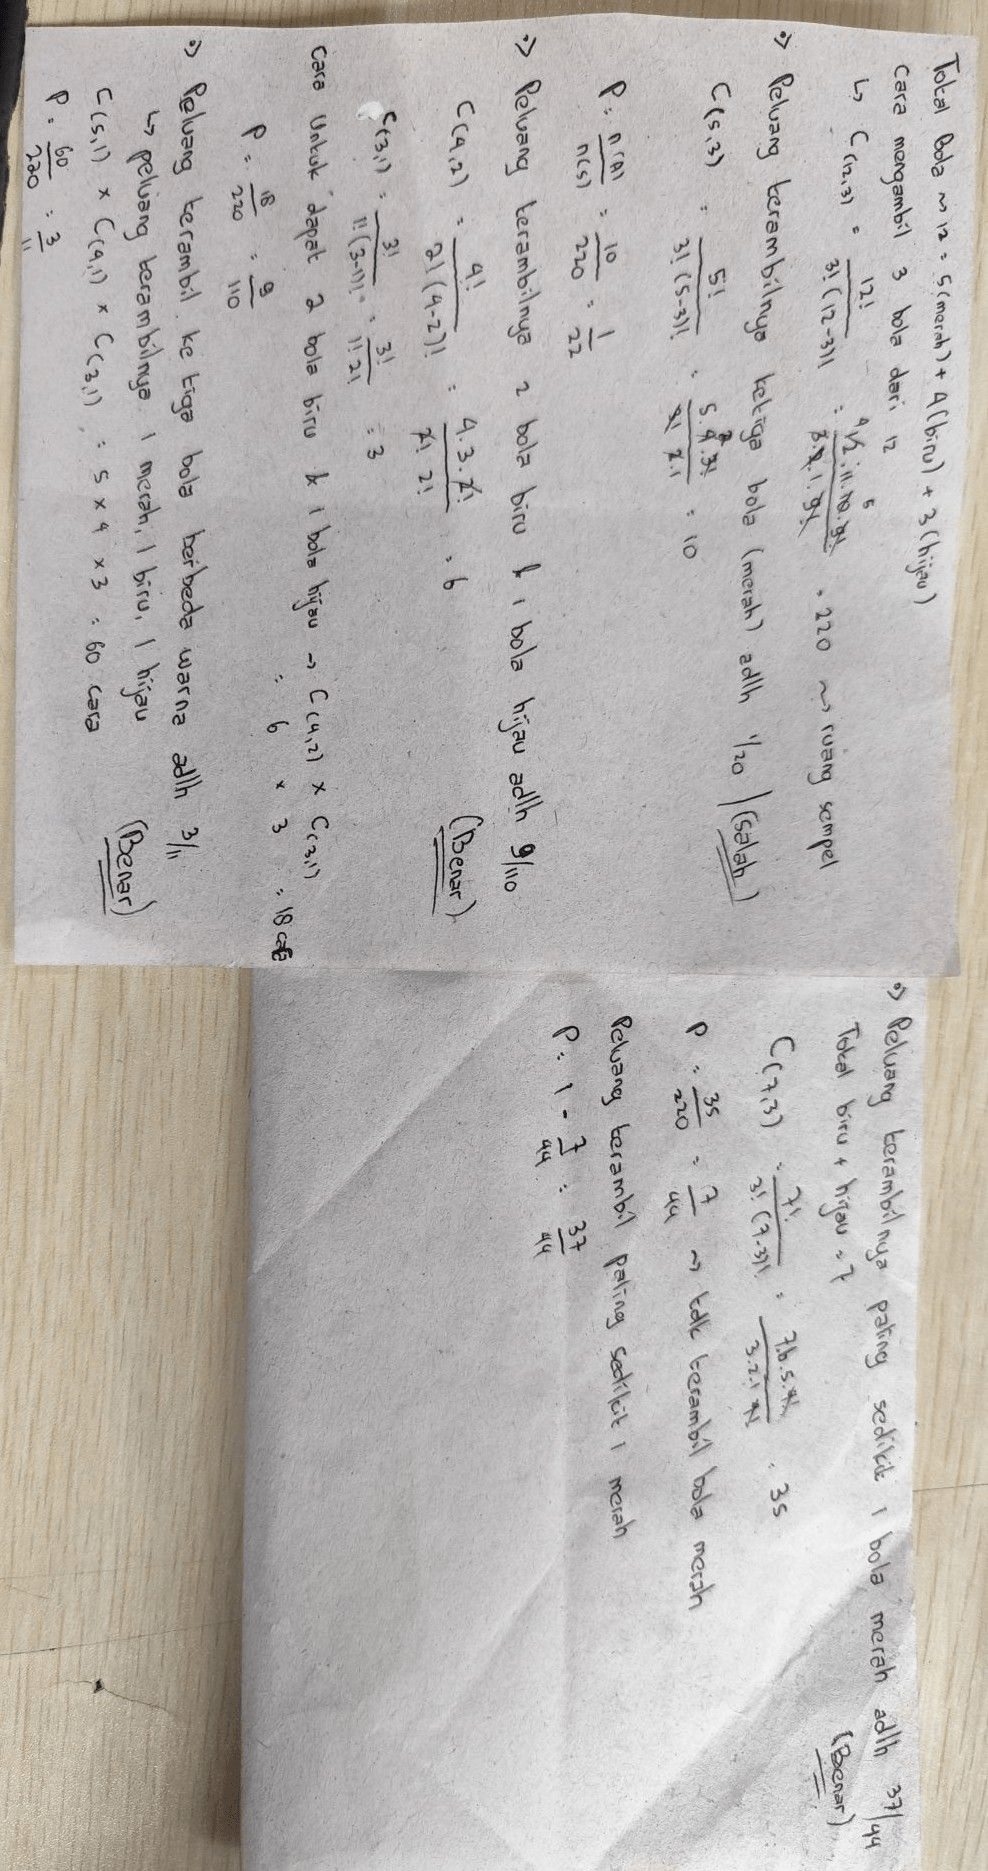 Total Bola ~> 12 = 5 (merah) + 4 (biru) + 3 (hijau)
Cara mengambil 3 bola dari 12
↳ C(12,3) = 12! / 3! (12-3)! = 12.11.10.9! / 3.2.1.9! = 220 ~> ruang sempel
•) Peluang terambilnya ketiga bola (merah) adlh 1/20 (salah)
C(5,3) = 5! / 3! (5-3)! = 5.4.3! / 3! 2.1 = 10
P = n(A) / n(s) = 10/220 = 1/22
•) Peluang terambilnya 2 bola biru & 1 bola hijau adlh 9/110
(Benar)
C(4,2) = 4! / 2! (4-2)! = 4.3.2! / 2! 2! = 6
C(3,1) = 3! / 1! (3-1)! = 3! / 1! 2! = 3
Cara untuk dapat 2 bola biru & 1 bola hijau → C(4,2) × C(3,1)
= 6 × 3 = 18 cara
P = 18/220 = 9/110
•) Peluang terambil ketiga bola berbeda warna adlh 3/11
↳ peluang terambilnya 1 merah, 1 biru, 1 hijau
(Benar)
C(5,1) × C(4,1) × C(3,1) = 5 × 4 × 3 = 60 cara
P = 60/220 = 3/11
•) Peluang terambilnya paling sedikit 1 bola merah adlh 37/44
Total biru + hijau = 7
(Benar)
C(7,3) = 7! / 3! (7-3)! = 7.6.5.4! / 3.2.1 4! = 35
P = 35/220 = 7/44 ~> tdk terambil bola merah
Peluang terambil paling sedikit 1 merah
P = 1 - 7/44 = 37/44